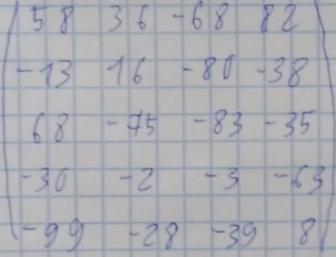 58 36 -68 82
-13 16 -80 -38
68 -75 -83 -35
-30 -2 -3 -63
-99 -28 -39 8